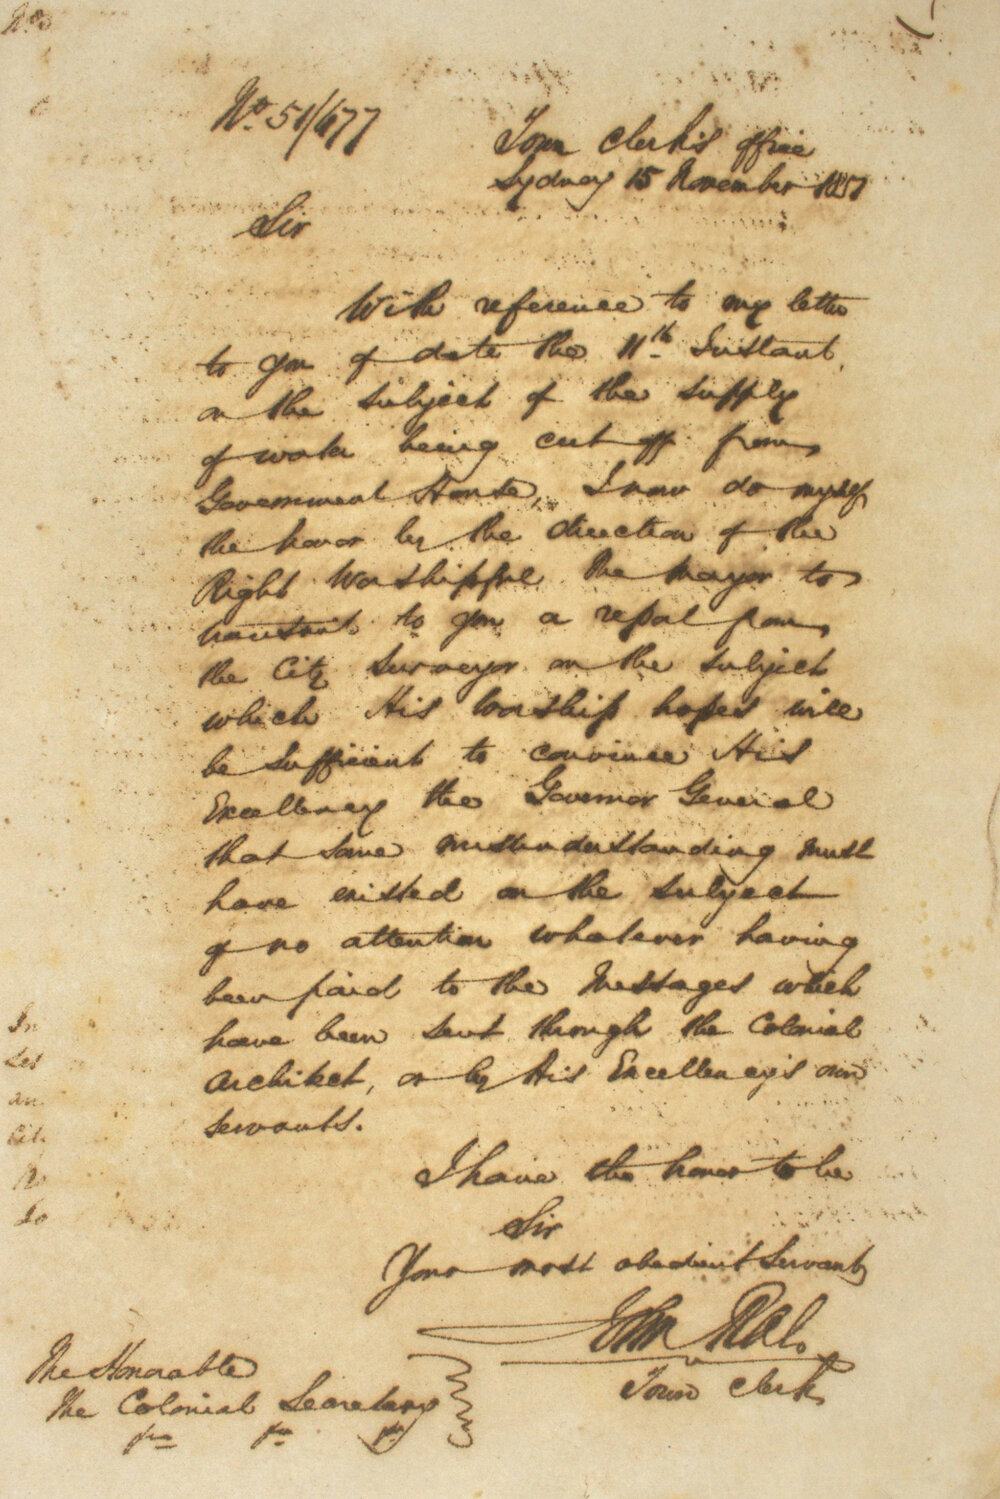 No. 51/677
Town Clerk's Office
Sydney 15 November 1851
Sir
With reference to my letter
to you of date the 11th Instant,
on the subject of the supply
of water being cut off from
Government House, I now do myself
the honor by the direction of the
Right Worshipful the Mayor to
transmit to you a report from
the City Surveyor on the subject
which His Worship hopes will
be sufficient to convince His
Excellency the Governor General
that some misunderstanding must
have existed on the subject
of no attention whatever having
been paid to the Messages which
have been sent through the Colonial
Architect, or by His Excellency's own
servants.
I have the honor to be
Sir
Your most obedient Servant
John
Town Clerk
The Honorable
The Colonial Secretary